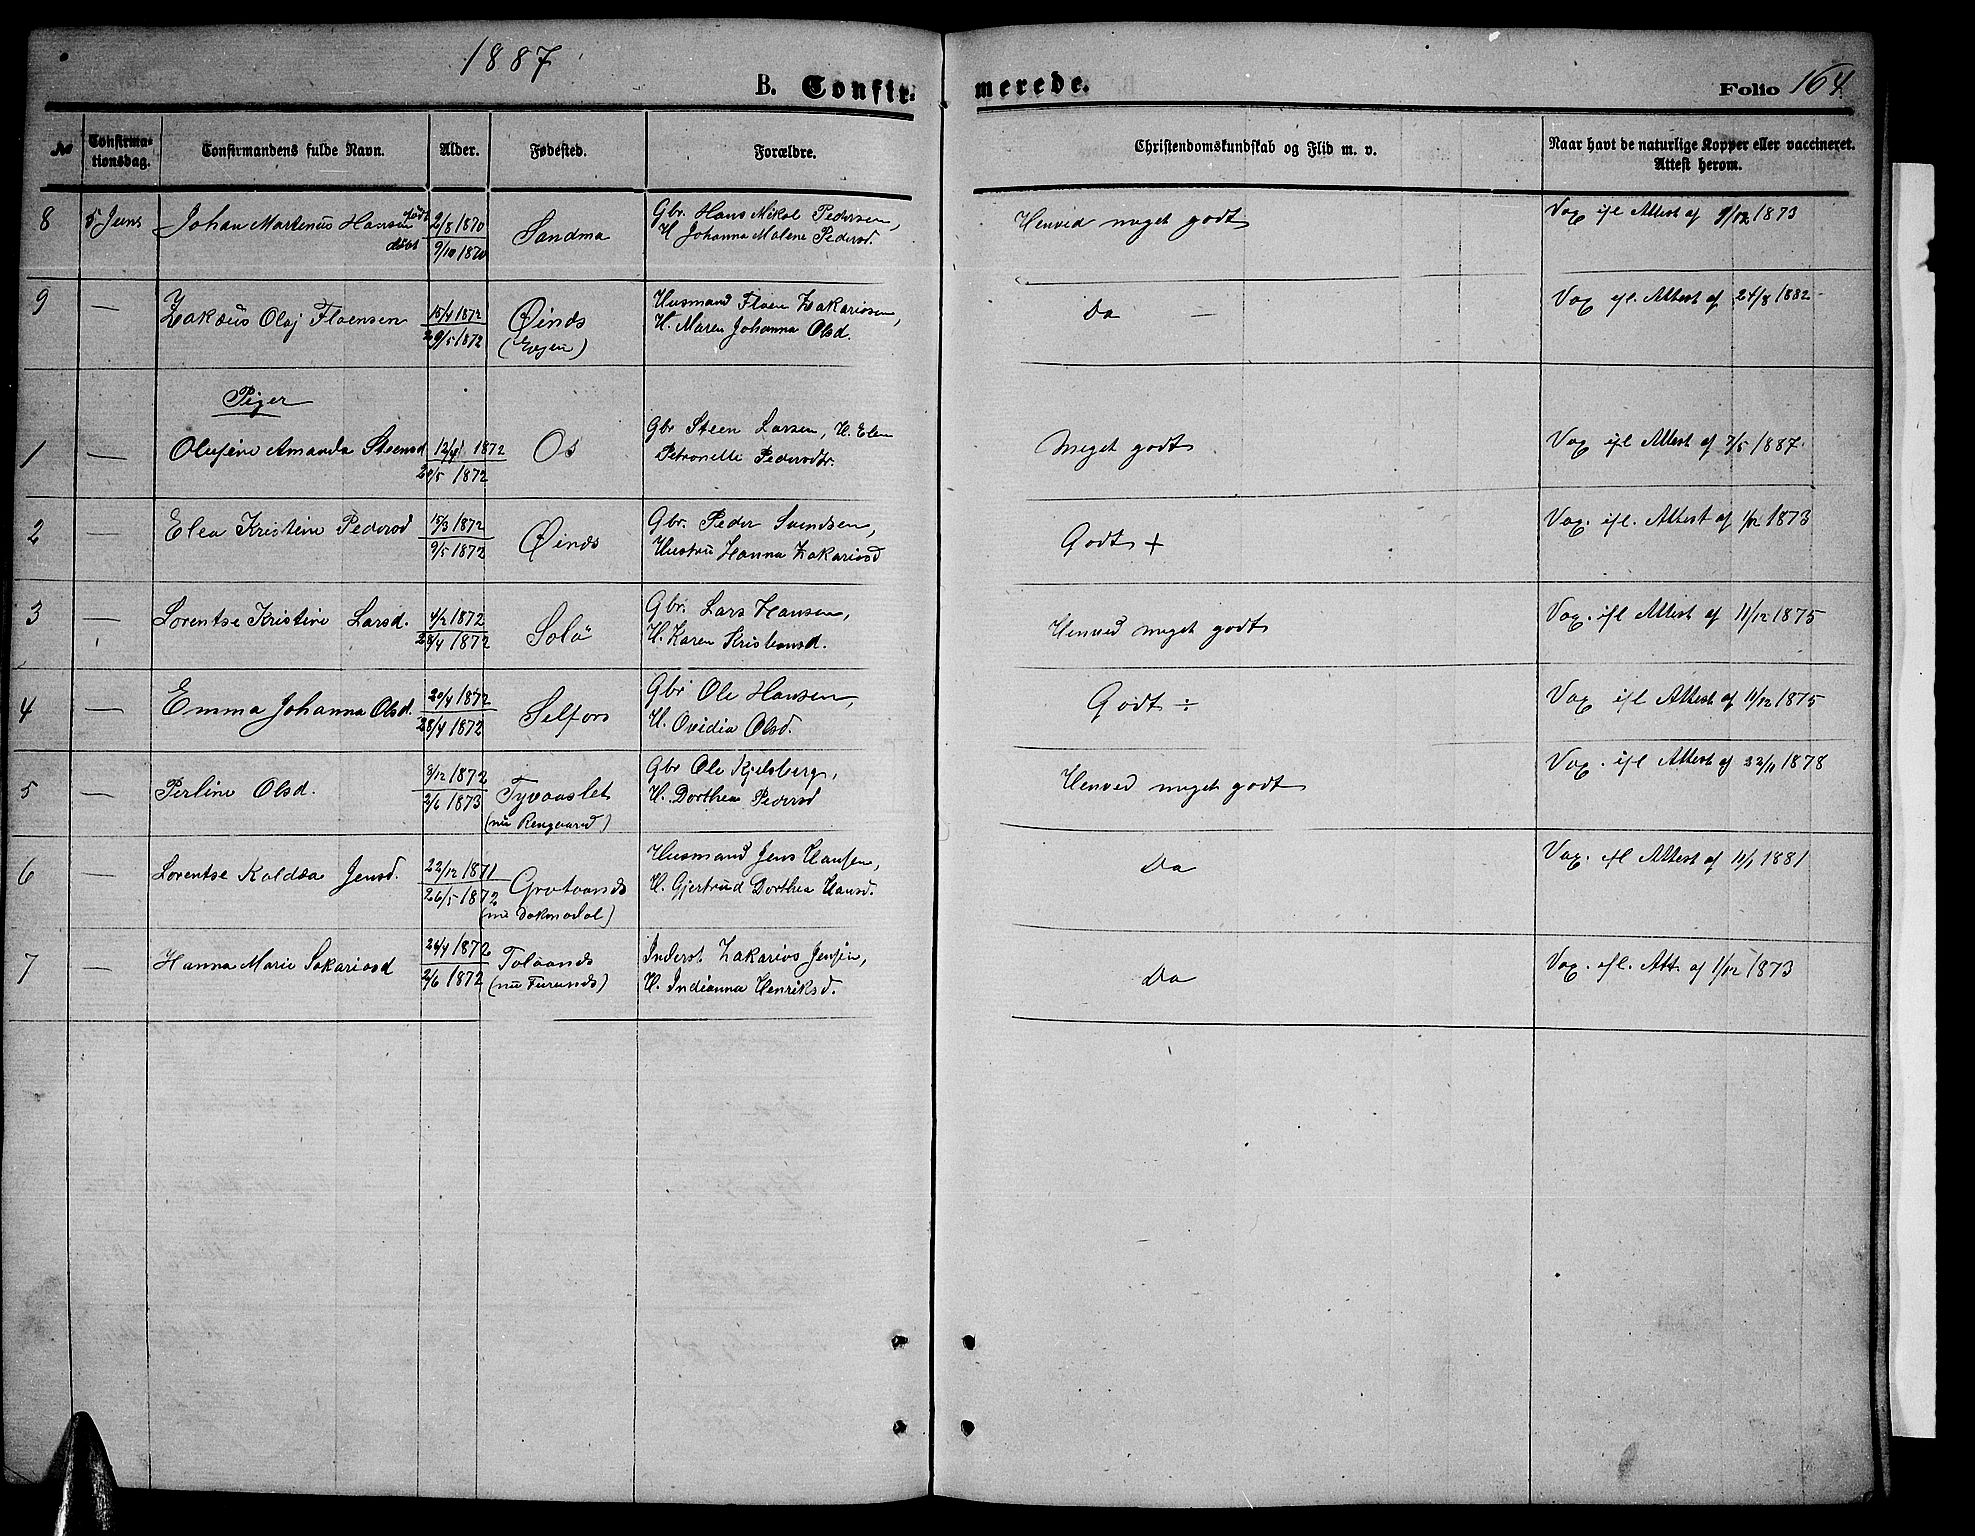 1887
B. Confirmerede.
Folio 164.
No
Confirmationsdag.
Confirmandens fulde Navn.
Alder.
Fødested.
Forældre.
Christendomskundskab og Flid m. v.
Naar havt de naturlige Kopper eller vaccineret.
Attest herom.
8 5 Juni Johan Martenus Hansen født 2/8 1870 Sandma Gbr. Hans Nikol Pedersen, Henved meget godt Vax ifl Attest af 9/12 1873
døbt 9/10 1870 H. Johanna Malene Pedersd.
9 — Zakæus Olaj Floensen 15/4 1872 Øinds Husmand Floen Zakariasen, Do — Vax ifl. Attest af 24/8 1882
29/5 1872 (Evjen) H. Maren Johanna Olsd.
Piger
1 — Olufine Amanda Steensd 12/4 1872 Os Gbr Steen Larsen, H. Elen Meget godt Vax ifl Attest af 7/5 1887.
20/5 1872 Petronelle Pedersdtr.
2 — Elea Kristine Pedersd 15/3 1872 Øinds Gbr. Peder Svendsen, Godt + Vax. ifl. Attest af 1/12 1873
9/5 1872 Hustru Hanna Zakariasd
3 — Lorentse Kristine Larsd. 4/2 1872 Solø Gbr. Lars Hansen, Henved meget godt Vax. ifl Attest af 11/12 1875
28/4 1872 H. Karen Kristensd.
4 — Emma Johanna Olsd. 20/4 1872 Selfors Gbr Ole Hansen, Godt ÷ Vax ifl Attest af 11/12 1875
28/4 1872 H. Ovidia Olsd.
5 — Perline Olsd. 9/12 1872 Tyvaaslet Gbr Ole Kjelsberg, Henved meget godt Vax. ifl Attest af 22/11 1878
2/6 1873 (nu Rengaard) H. Dorthea Pedersd
6 — Lorentse Koldæa Jensd. 22/12 1871 Grutaands Husmand Jens Hansen, Do Vax. ifl Attest af 11/1 1881
26/5 1872 (nu Dokmodal) H. Gjertrud Dorthea Hansd.
7 — Hanna Marie Sakariasd 24/4 1872 Tolaands Inderst Zakarias Jensen, Do Vax. ifl. Att. af 1/12 1873
2/6 1872 (nu Furunds) H. Indianna Henriksd.